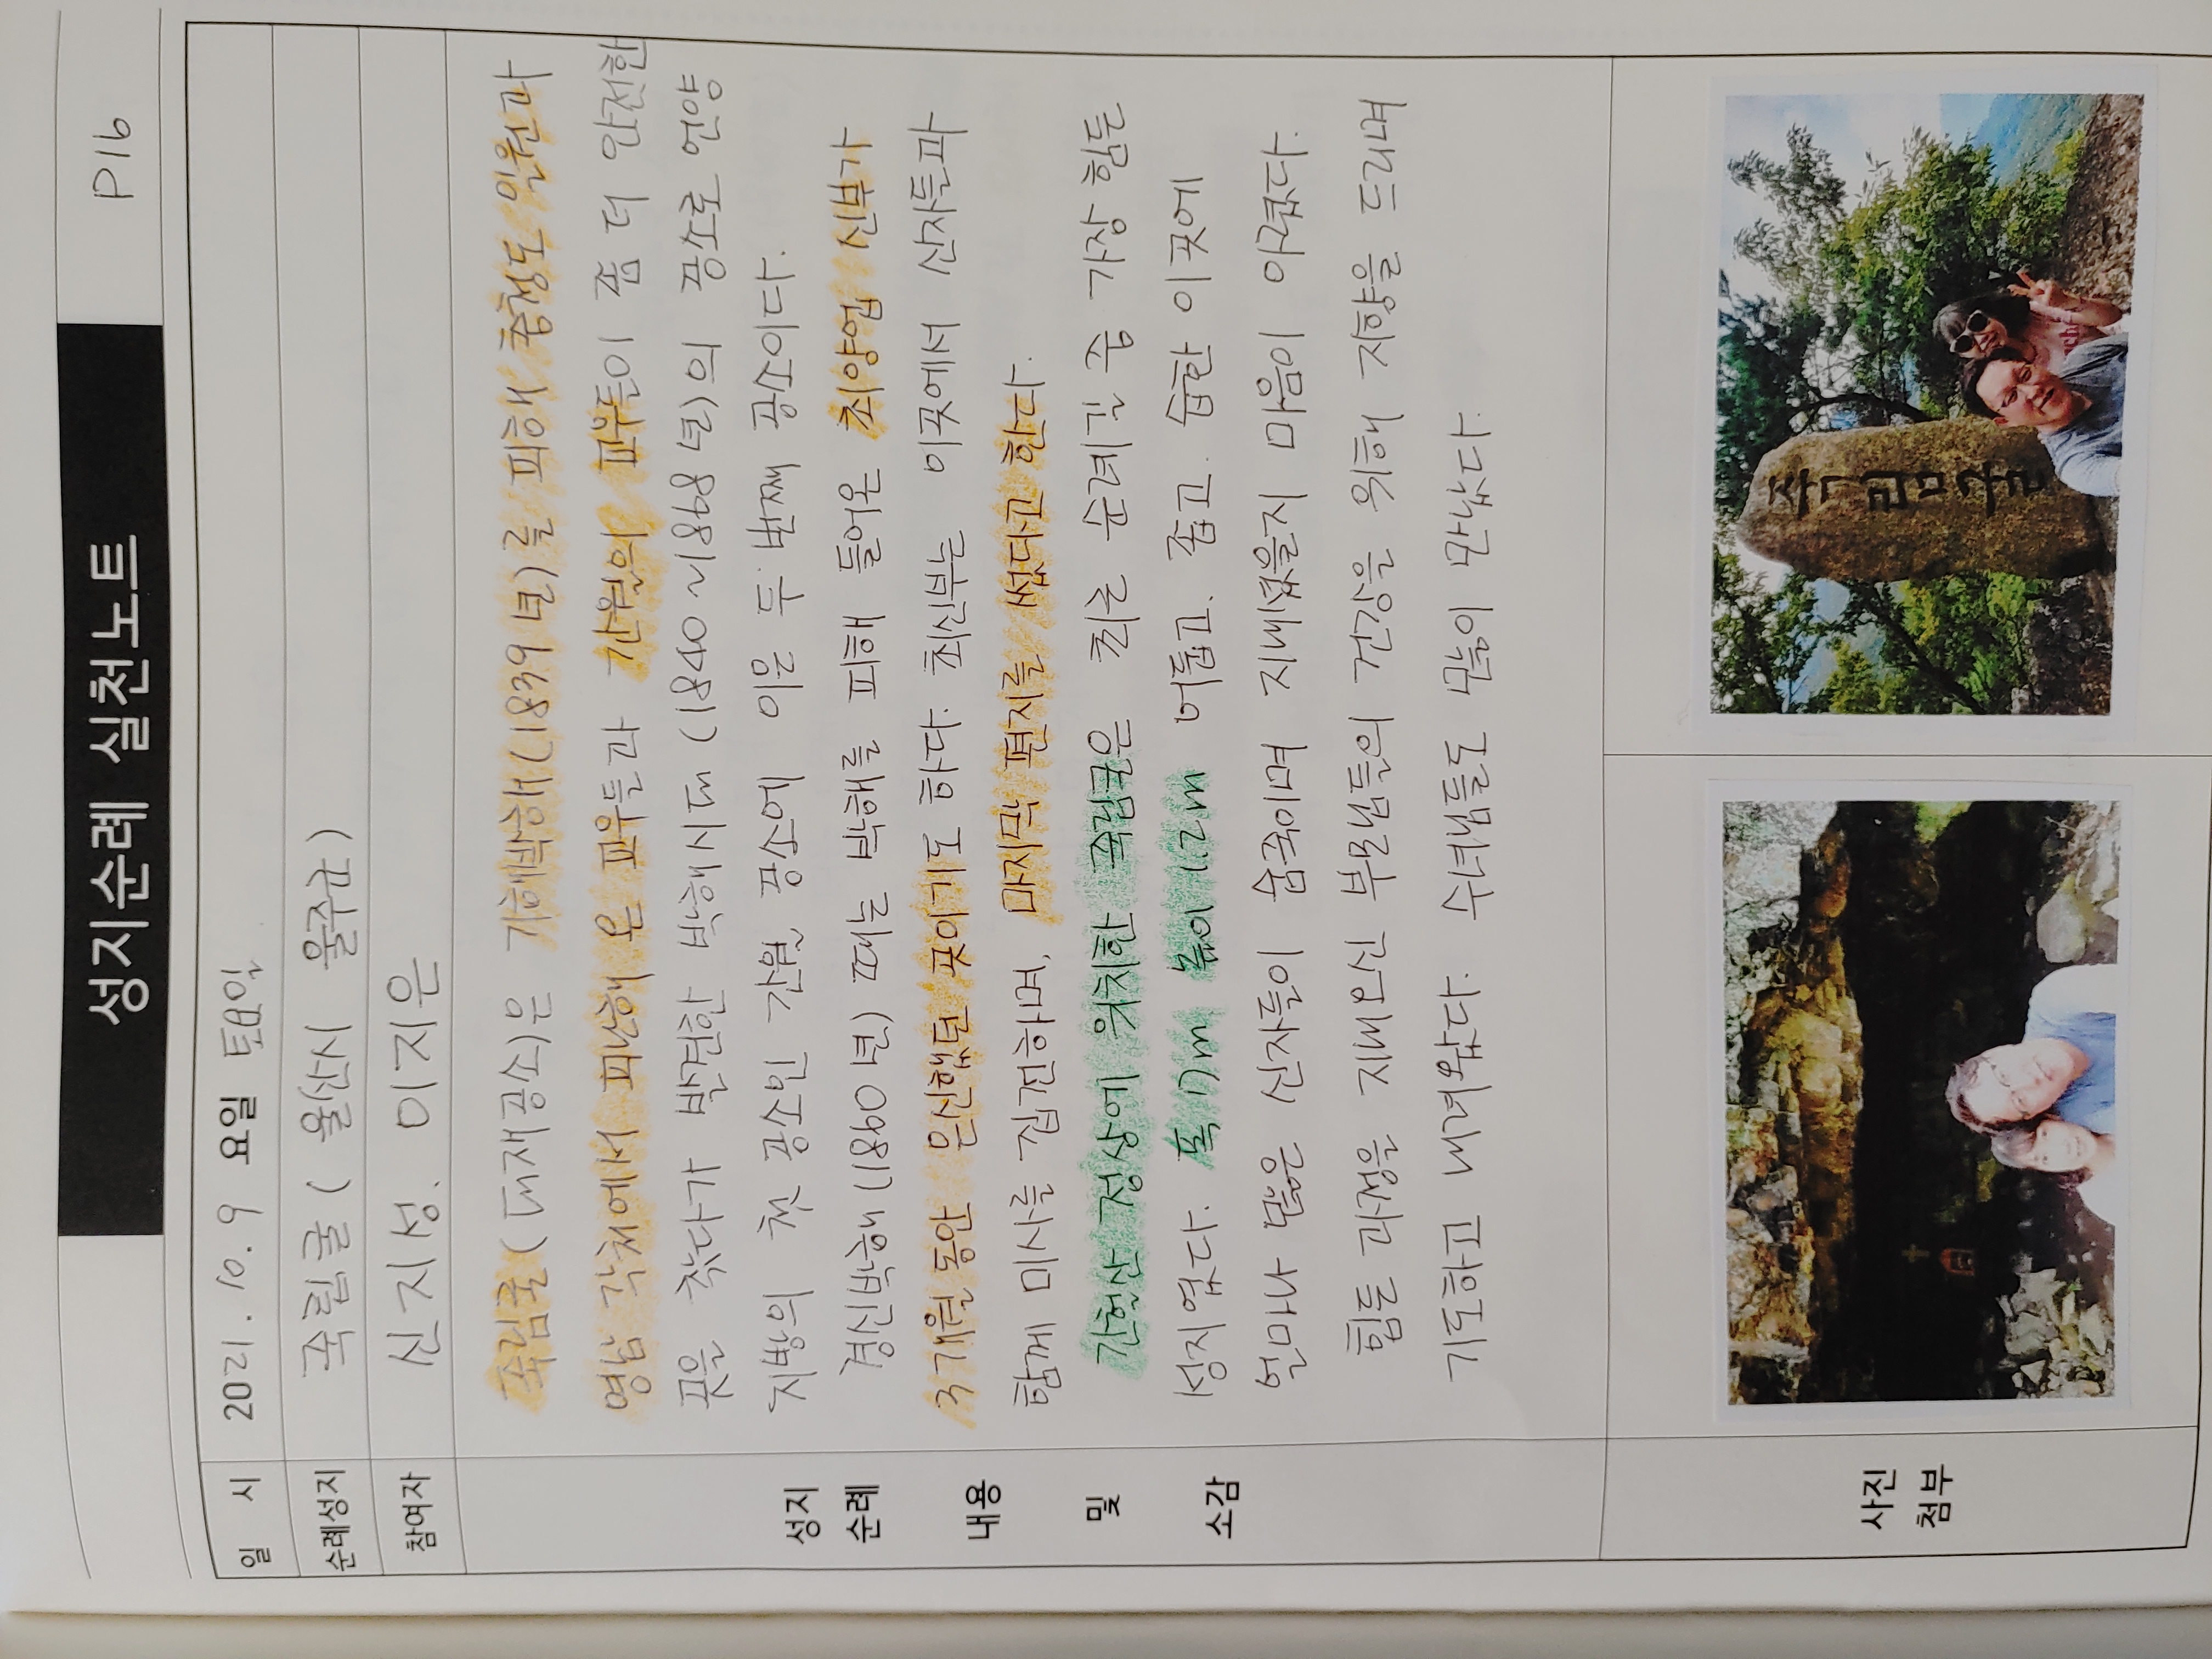 성지순례 실천노트
P16
일 시 2021. 10. 9 요일 토요일
순례성지 죽림굴 ( 울산시 울주군 )
참여자 신지성. 이지은
성지
순례
내용
및
소감
죽림굴(대재공소)은 기해박해(1839년)를 피해 충청도 일원과
영남 각처에서 피난해 온 교우들과 간월의 교우들이 좀 더 안전한
곳을 찾다가 발견한 박해시대 (1840~1868년)의 공소로 언양
지방의 첫 공소인 간월 공소에 이은 두 번째 공소이다.
경신박해(1860년) 때는 박해를 피해 들어온 최양업 신부가
3개월동안 은신했던 곳이기도 하다. 최신부는 이곳에서 신자들과
함께 미사를 집전하며, 마지막 편지를 썼다고 한다.
간헐산 정상에 위치한 죽림굴은 최근 순례길 중 가장 힘든
성지였다. 폭 17m 높이 1.2m 어둡고. 좁고. 습한 이곳에
얼마나 많은 신자들이 숨죽이며 지내셨을지 마음이 아렸다.
힘든 과정을 지내오신 부모님들의 건강을 위해 지향을 드리며
기도하고 내려왔다. 수녀님들도 많이 만났다.
사진
첨부
죽림굴